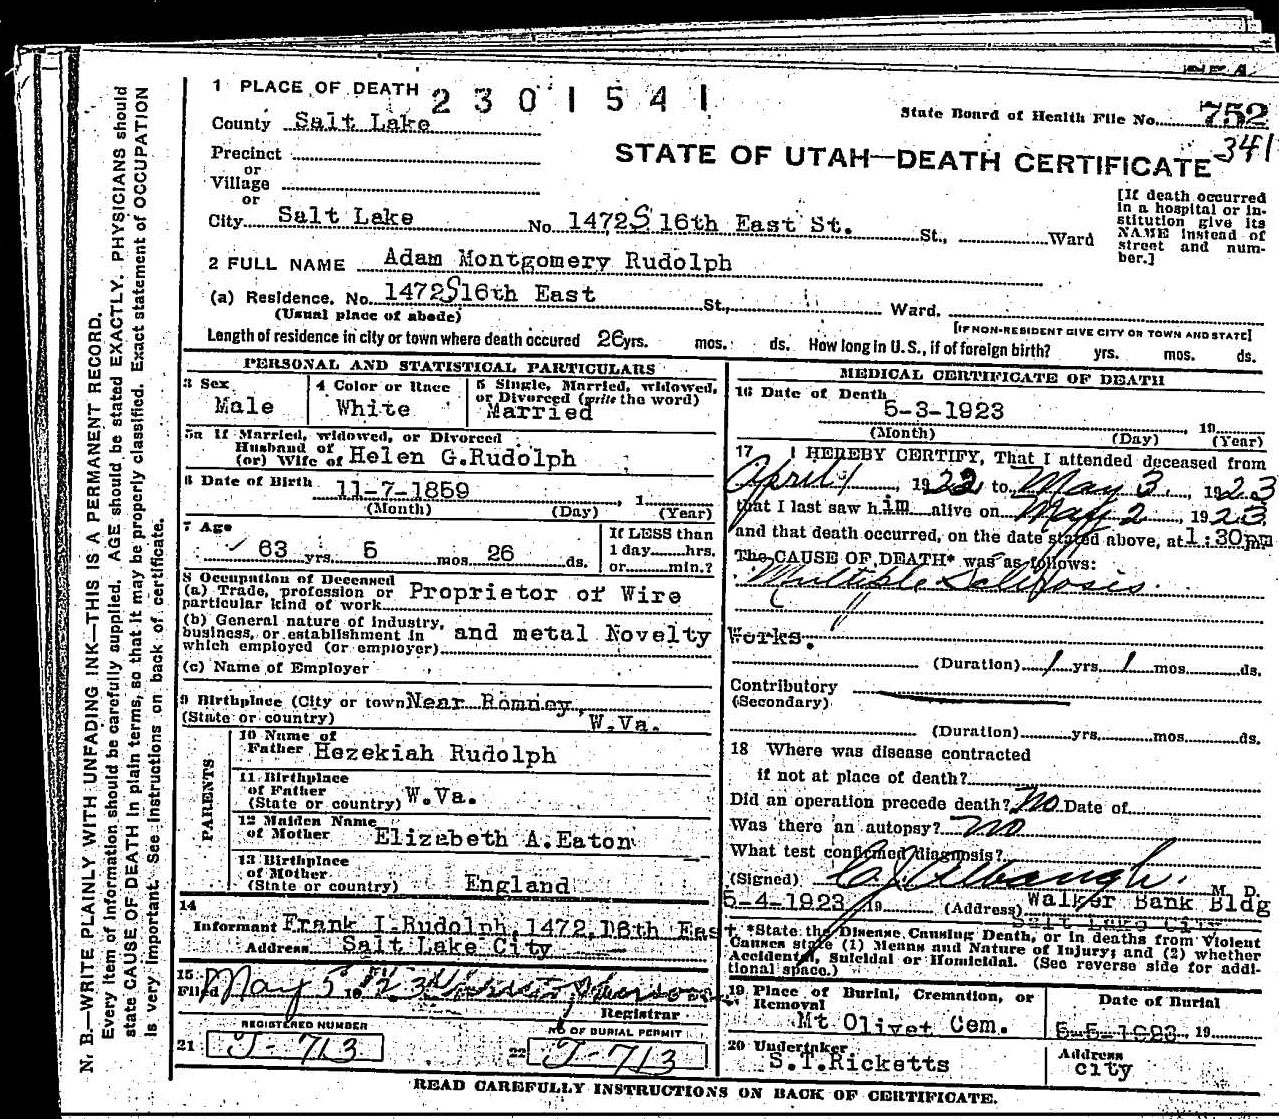 1 PLACE OF DEATH 2301541
State Board of Health File No. 752
341
County Salt Lake
STATE OF UTAH—DEATH CERTIFICATE
Precinct
or
Village
or
City Salt Lake No. 1472 S 16th East St. St., Ward
[If death occurred
in a hospital or in-
stitution give its
NAME instead of
street and num-
ber.]
2 FULL NAME Adam Montgomery Rudolph
(a) Residence. No. 1472 S 16th East St., Ward.
(Usual place of abode)
[IF NON-RESIDENT GIVE CITY OR TOWN AND STATE]
Length of residence in city or town where death occured 26 yrs. mos. ds. How long in U.S., if of foreign birth? yrs. mos. ds.
PERSONAL AND STATISTICAL PARTICULARS
3 Sex
Male
4 Color or Race
White
5 Single, Married, widowed,
or Divorced (write the word)
Married
5a If Married, widowed, or Divorced
Husband of
(or) Wife of Helen G. Rudolph
6 Date of Birth 11-7-1859, 1
(Month) (Day) (Year)
7 Age
63 yrs. 5 mos. 26 ds.
If LESS than
1 day hrs.
or min.?
8 Occupation of Deceased
(a) Trade, profession or
particular kind of work Proprietor of Wire
(b) General nature of industry,
business, or establishment in
which employed (or employer) and metal Novelty Works.
(c) Name of Employer
9 Birthplace (City or town Near Romney,
(State or country) W.Va.
PARENTS
10 Name of
Father Hezekiah Rudolph
11 Birthplace
of Father
(State or country) W.Va.
12 Maiden Name
of Mother Elizabeth A. Eaton
13 Birthplace
of Mother
(State or country) England
14
Informant Frank I. Rudolph, 1472, 16th East
Address Salt Lake City
15
Filed May 5 1923
Registrar
REGISTERED NUMBER
21 J-713
NO OF BURIAL PERMIT
22 J-713
MEDICAL CERTIFICATE OF DEATH
16 Date of Death
5-3-1923, 19
(Month) (Day) (Year)
17 I HEREBY CERTIFY, That I attended deceased from
April 1, 1922 to May 3, 1923
that I last saw him alive on May 2, 1923
and that death occurred, on the date stated above, at 1:30 pm
The CAUSE OF DEATH* was as follows:
Multiple Sclerosis
(Duration) 1 yrs 1 mos. ds.
Contributory
(Secondary)
(Duration) yrs. mos. ds.
18 Where was disease contracted
if not at place of death?
Did an operation precede death? No Date of
Was there an autopsy? No
What test confirmed diagnosis?
(Signed) M. D.
5-4-1923, 19 (Address) Walker Bank Bldg
Salt Lake City
*State the Disease Causing Death, or in deaths from Violent
Causes state (1) Means and Nature of Injury; and (2) whether
Accidental, Suicidal or Homicidal. (See reverse side for addi-
tional space.)
19 Place of Burial, Cremation, or
Removal
Mt Olivet Cem.
Date of Burial
5-5-1923, 19
20 Undertaker
S.T. Ricketts
Address
city
READ CAREFULLY INSTRUCTIONS ON BACK OF CERTIFICATE.
N. B.—WRITE PLAINLY WITH UNFADING INK—THIS IS A PERMANENT RECORD.
Every item of information should be carefully supplied. AGE should be stated EXACTLY. PHYSICIANS should
state CAUSE OF DEATH in plain terms, so that it may be properly classified. Exact statement of OCCUPATION
is very important. See instructions on back of certificate.